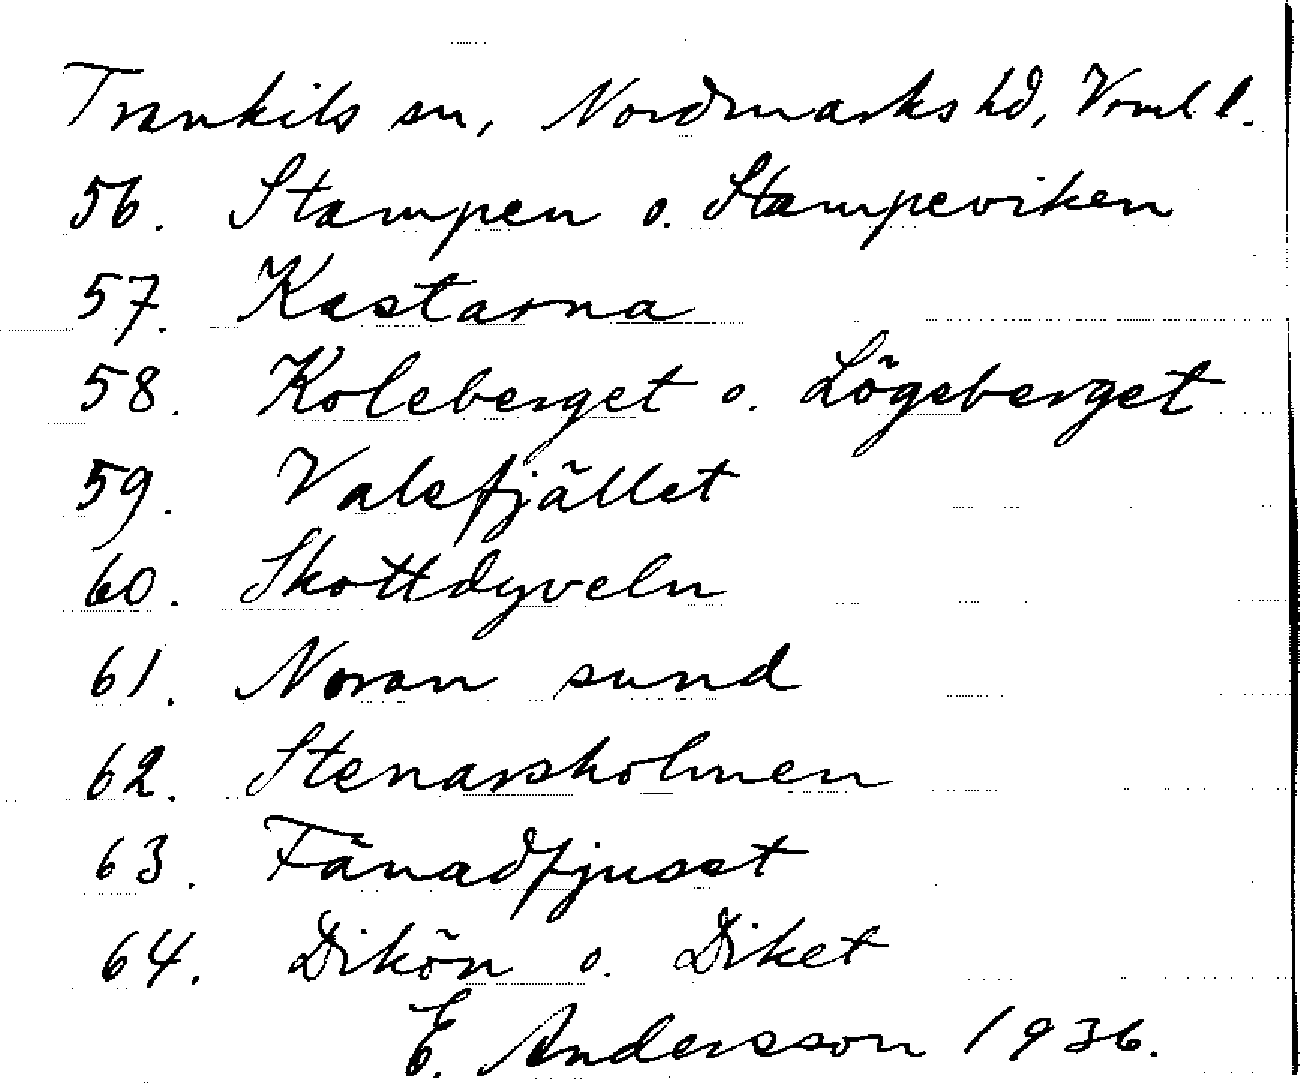 Trankils sn, Nordmarks hd, Vrml l.
56. Stampen o. Stampeviken
57. Kastarna
58. Koleberget o. Lögeberget
59. Valefjället
60. Skottdyveln
61. Noran sund
62. Stenarsholmen
63. Fänadfjuset
64. Dikön o. Diket
E. Andersson 1936.